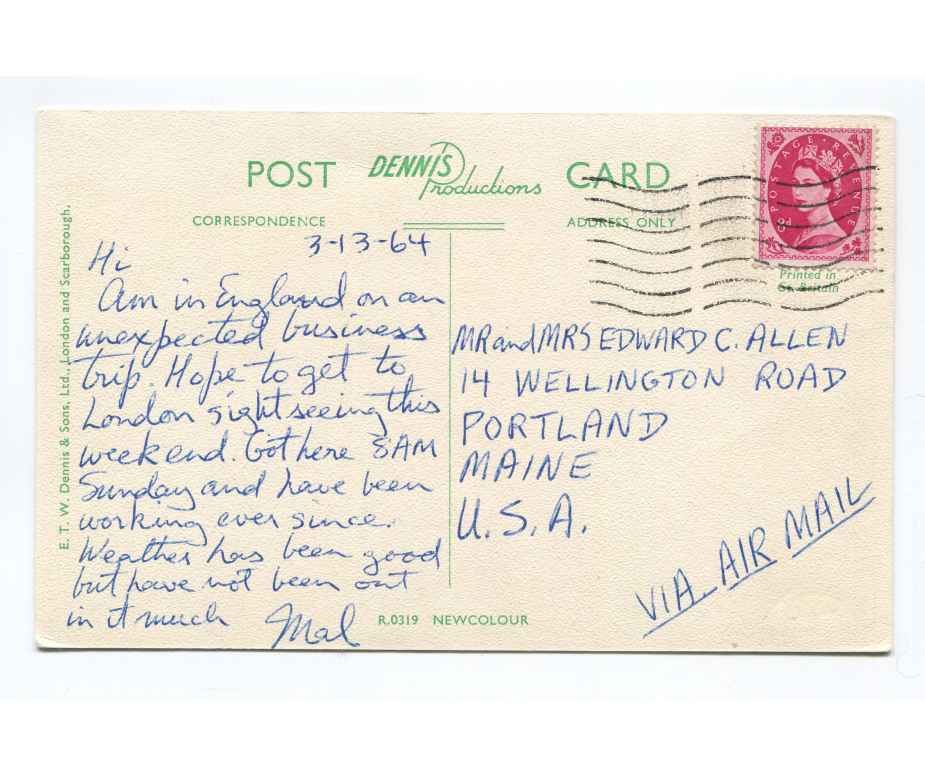 POST DENNIS Productions CARD
CORRESPONDENCE ADDRESS ONLY
POSTAGE REVENUE
8d
Printed in
Gt. Britain
3-13-64
Hi
Am in England on an
unexpected business
trip. Hope to get to
London sightseeing this
weekend. Got here 8AM
Sunday and have been
working ever since.
Weather has been good
but have not been out
in it much Mal
MR and MRS EDWARD C. ALLEN
14 WELLINGTON ROAD
PORTLAND
MAINE
U.S.A.
VIA AIR MAIL
R.0319 NEWCOLOUR
E. T. W. Dennis & Sons, Ltd., London and Scarborough.